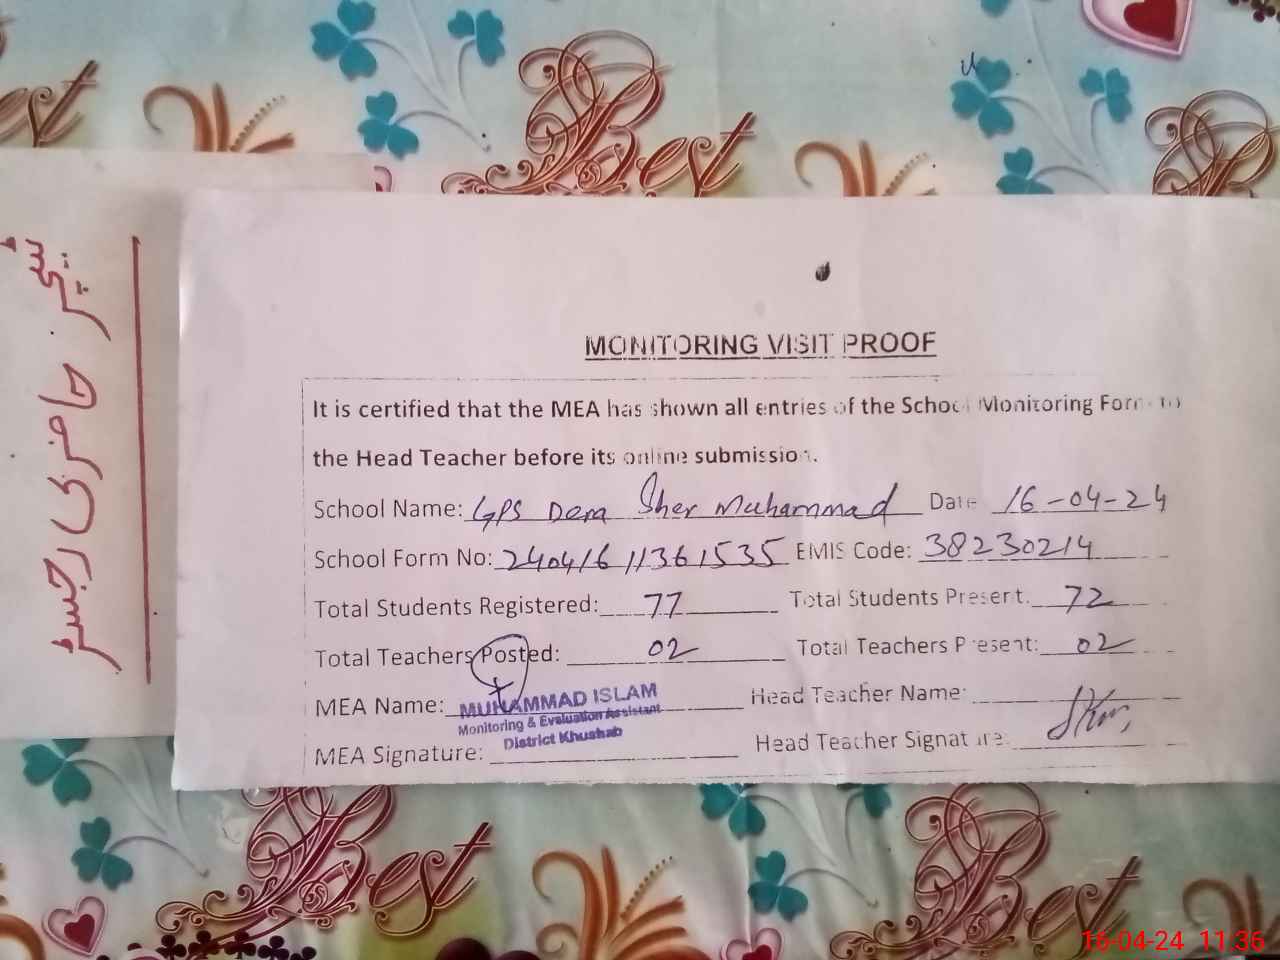 Best
Best
ٹیچر حاضری رجسٹر
MONITORING VISIT PROOF
It is certified that the MEA has shown all entries of the School Monitoring Form to
the Head Teacher before its online submission.
School Name: GPS Dera Sher Muhammad Date 16-04-24
School Form No: 240416 11361535 EMIS Code: 38230214
Total Students Registered: 77 Total Students Present: 72
Total Teachers Posted: 02 Total Teachers Present: 02
MEA Name: MUHAMMAD ISLAM Head Teacher Name:
Monitoring & Evaluation Assistant
District Khushab
MEA Signature: Head Teacher Signature:
Best
Best
16-04-24 11:36